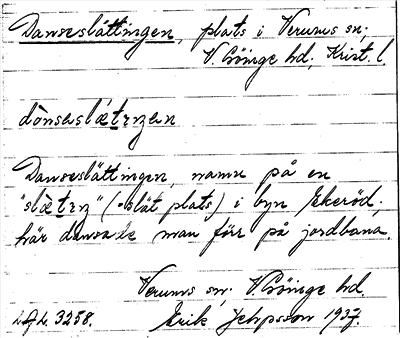 Danseslättingen, plats i Verums sn;
V. Göinge hd, Krist. l.
dånseslætɩŋen
Danseslättingen, namn på en
"slætɩŋ" (= slät plats) i byn Ekeröd;
här dansade man förr på jordbana.
Verums sn; V. Göinge hd.
L.A.L. 3258. Erik Jeppsson 1937.